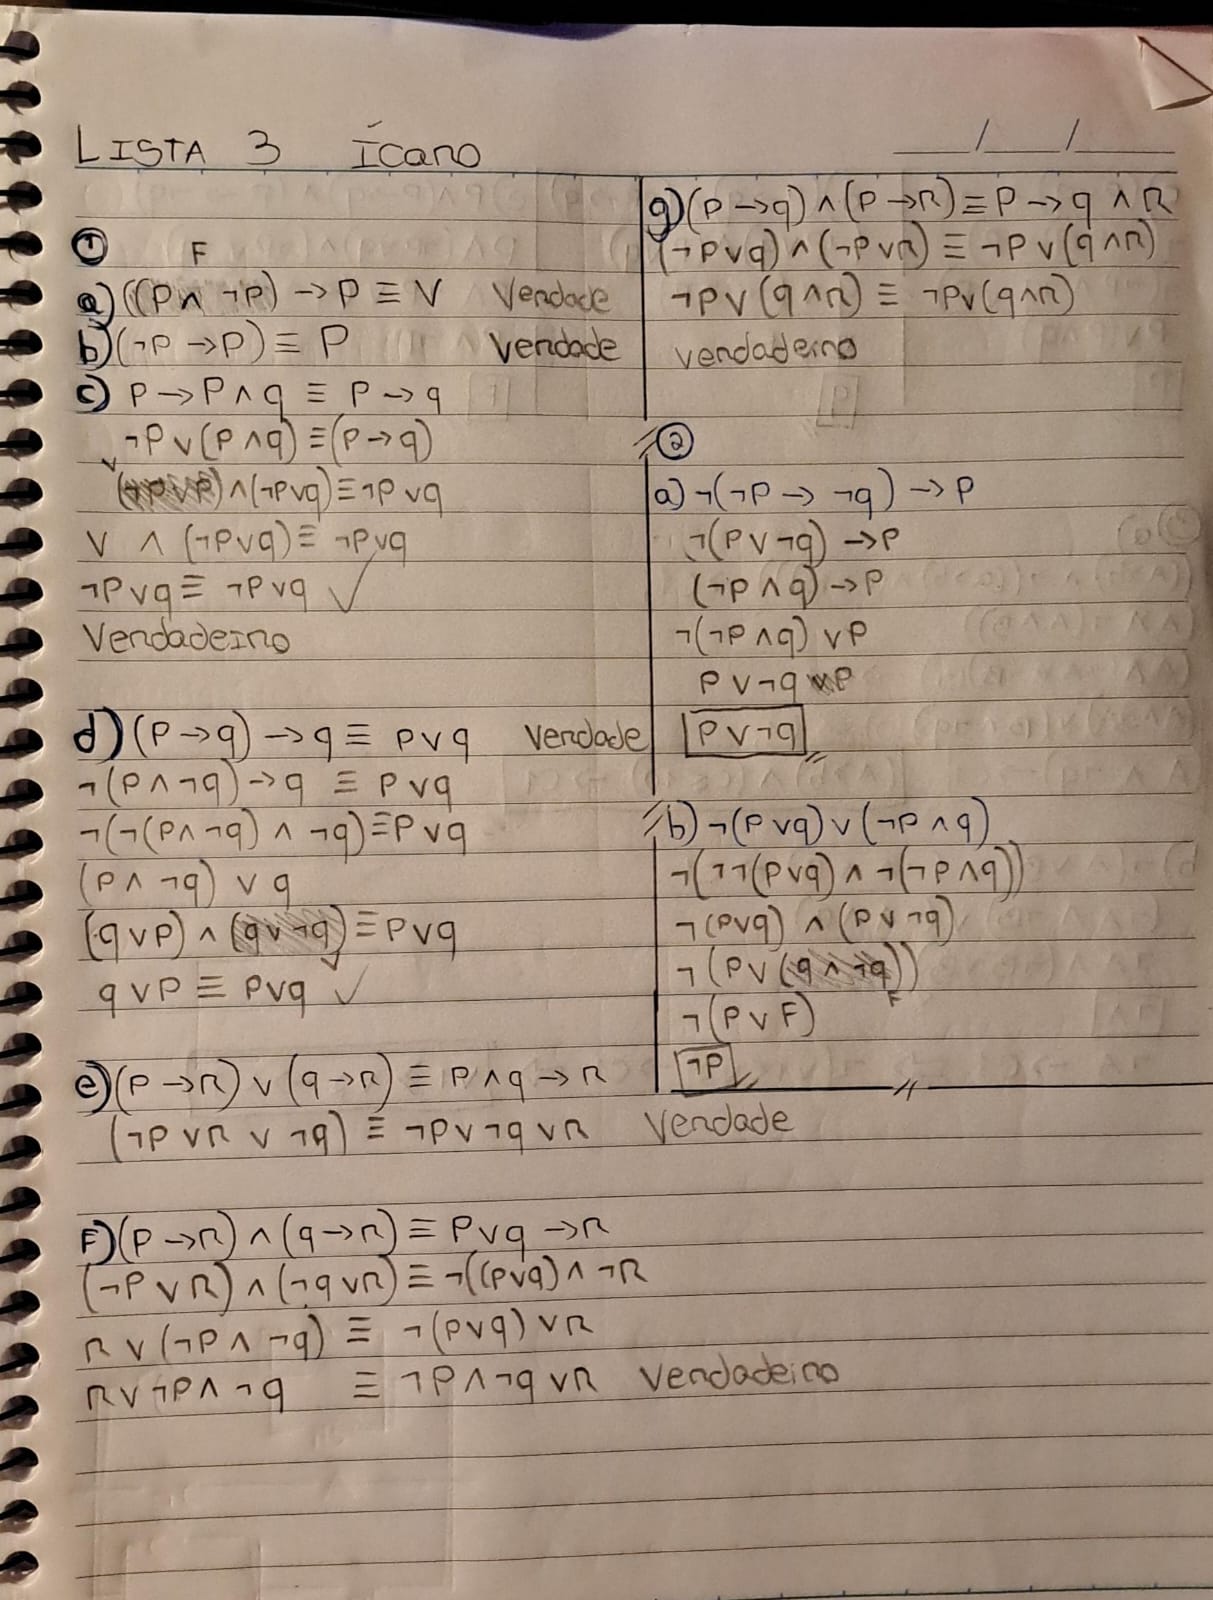 LISTA 3 Ícaro
__/__/__
1
F
a) ((P ∧ ¬P) → P ≡ V Verdade
b) (¬P → P) ≡ P Verdade
c) P → P ∧ q ≡ P → q
¬P ∨ (P ∧ q) ≡ (P → q)
V
(¬P ∨ P) ∧ (¬P ∨ q) ≡ ¬P ∨ q
V ∧ (¬P ∨ q) ≡ ¬P ∨ q
¬P ∨ q ≡ ¬P ∨ q ✓
Verdadeiro
d) (P → q) → q ≡ P ∨ q Verdade
¬(P ∧ ¬q) → q ≡ P ∨ q
¬(¬(P ∧ ¬q) ∧ ¬q) ≡ P ∨ q
(P ∧ ¬q) ∨ q
(q ∨ P) ∧ (q ∨ ¬q) ≡ P ∨ q
V
q ∨ P ≡ P ∨ q ✓
e) (P → R) ∨ (q → R) ≡ P ∧ q → R
(¬P ∨ R ∨ ¬q) ≡ ¬P ∨ ¬q ∨ R Verdade
F) (P → R) ∧ (q → R) ≡ P ∨ q → R
(¬P ∨ R) ∧ (¬q ∨ R) ≡ ¬((P ∨ q) ∧ ¬R
R ∨ (¬P ∧ ¬q) ≡ ¬(P ∨ q) ∨ R
R ∨ ¬P ∧ ¬q ≡ ¬P ∧ ¬q ∨ R Verdadeiro
g) (P → q) ∧ (P → R) ≡ P → q ∧ R
(¬P ∨ q) ∧ (¬P ∨ R) ≡ ¬P ∨ (q ∧ R)
¬P ∨ (q ∧ R) ≡ ¬P ∨ (q ∧ R)
verdadeiro
2
a) ¬(¬P → ¬q) → P
¬(P ∨ ¬q) → P
(¬P ∧ q) → P
¬(¬P ∧ q) ∨ P
P ∨ ¬q ∨ P
P ∨ ¬q
b) ¬(P ∨ q) ∨ (¬P ∧ q)
¬(¬¬(P ∨ q) ∧ ¬(¬P ∧ q))
¬(P ∨ q) ∧ (P ∨ ¬q)
¬(P ∨ (q ∧ ¬q))
F
¬(P ∨ F)
¬P